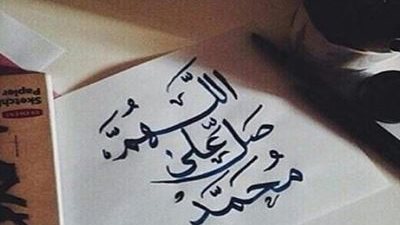 اللَّهُمَّ
صَلِّ عَلَى
مُحَمَّد
Sketch
Papier